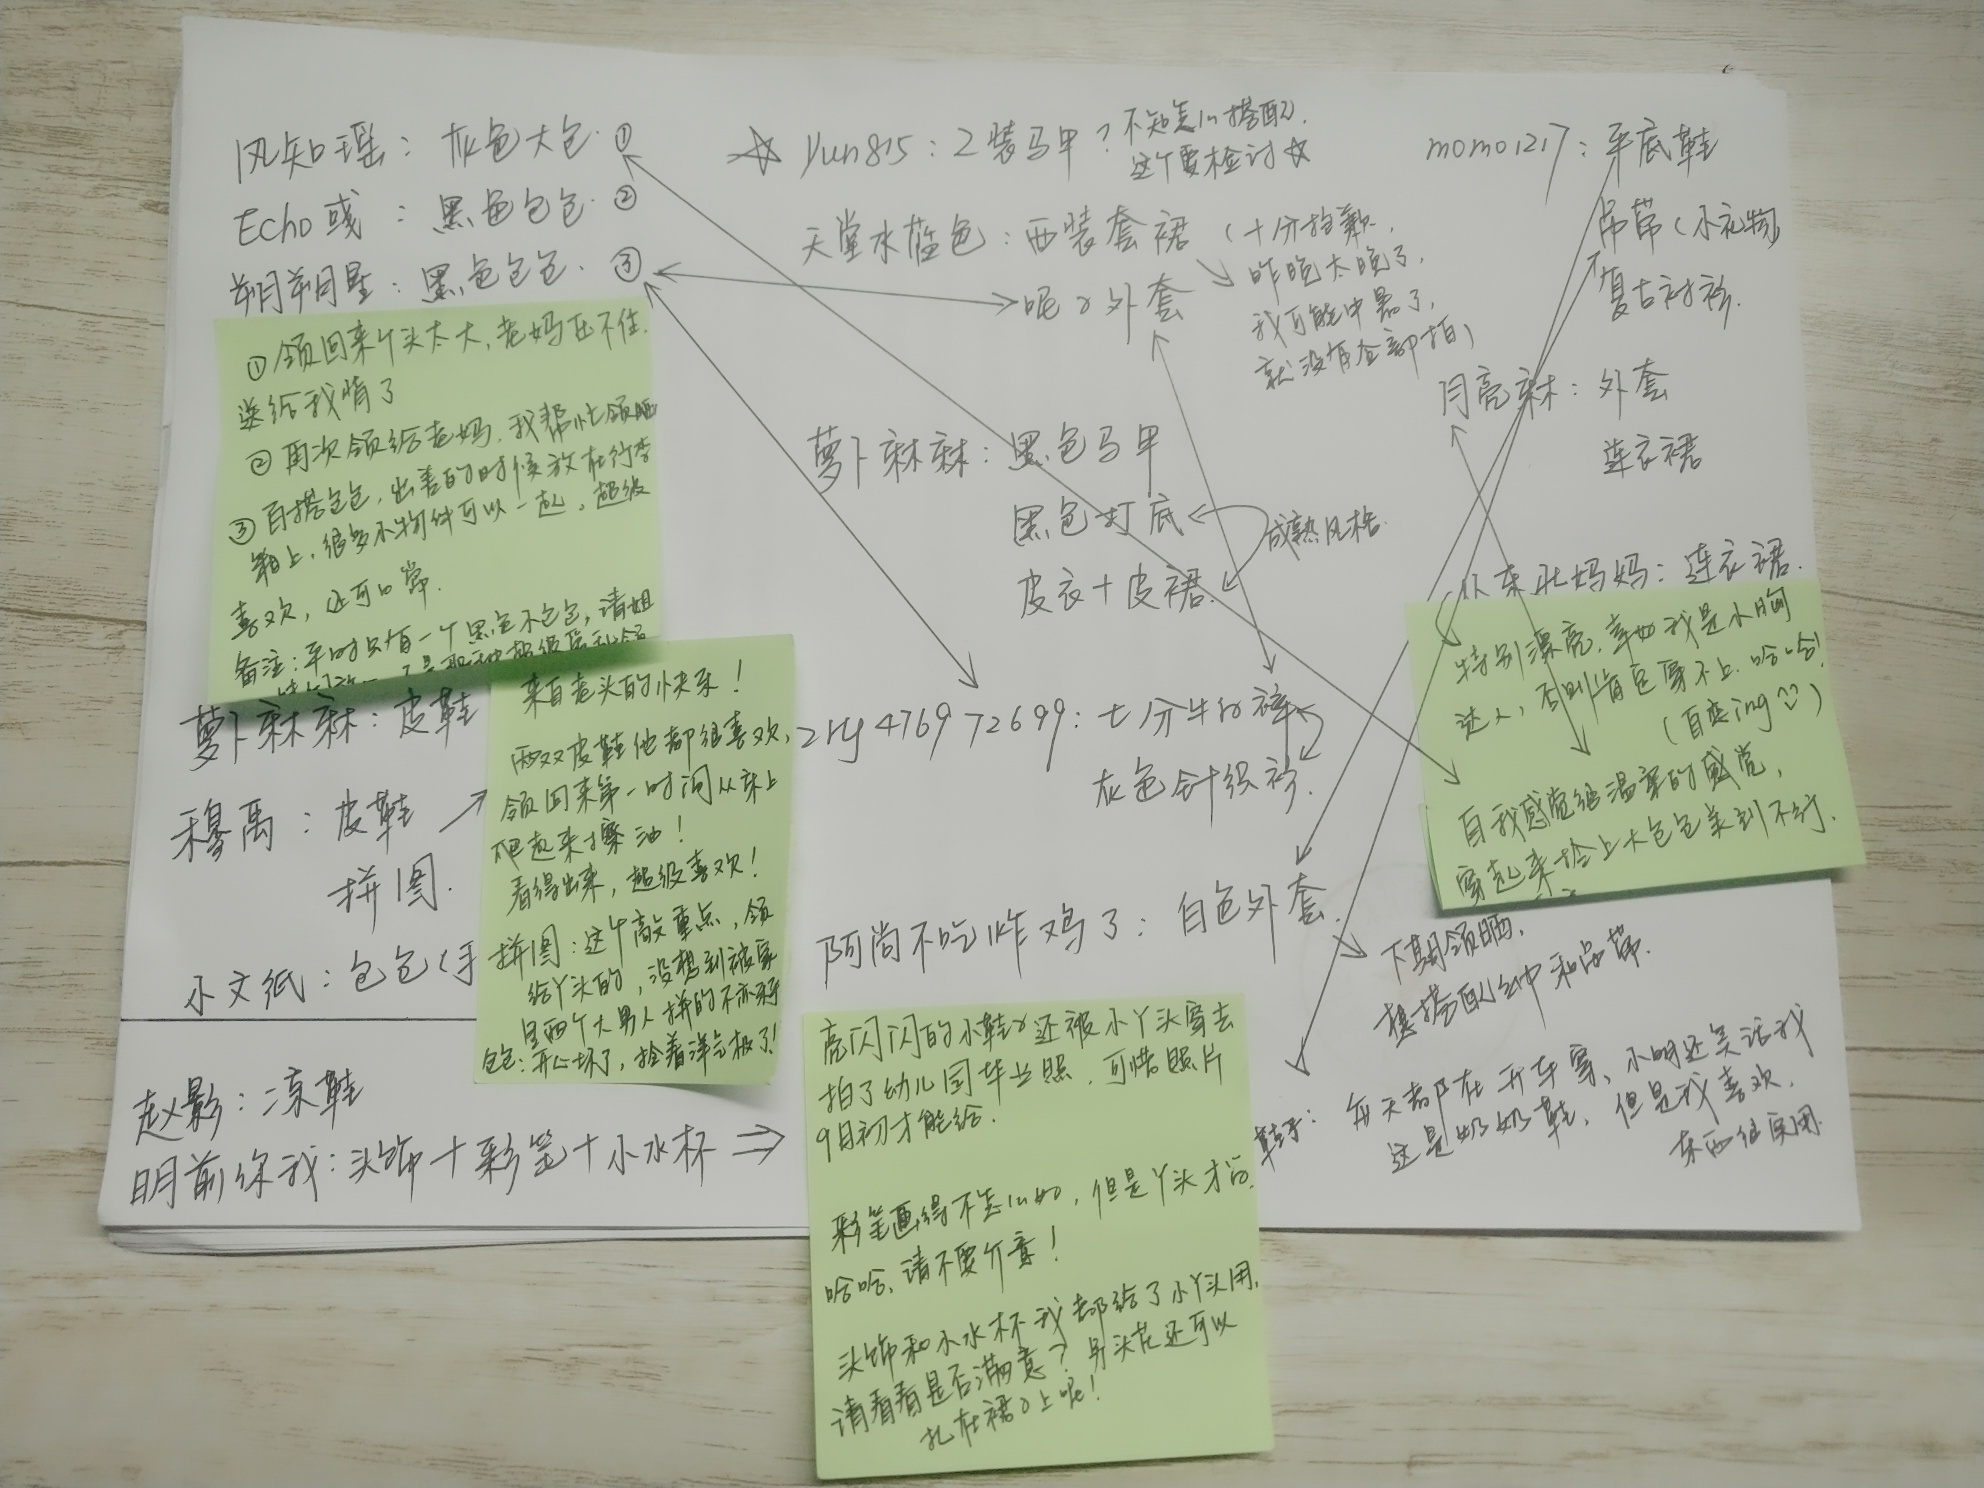 风知瑶：灰色大包 ①
Echo彧：黑色包包 ②
朔朔星：黑色包包 ③
①领回来个头太大，老妈压不住.
送给我啃了
②再次领给老妈，我帮忙领晒
③百搭包包，出差的时候放在行李
箱上，很多小物件可以一起，超级
喜欢，还可以当
备注：平时只有一个黑色小包包，请姐
萝卜麻麻：皮鞋
穆禹：皮鞋
拼图.
小文纸：包包（手
来自老头的快乐！
两双皮鞋他都很喜欢，
领回来第一时间从床上
爬起来擦油！
看得出来，超级喜欢！
拼图：这个敲重点，领
给丫头的，没想到被家
里两个大男人拼的不亦乐乎
包包：开心坏了，拎着洋气极了！
赵影：凉鞋
明前你我：头饰＋彩笔＋小水杯 ⇒
☆ yun815：2装马甲？不知怎么搭配.
这个要检讨☆
天堂水蓝色：西装套裙（十分抱歉，
昨晚太晚了，
我可能中暑了，
就没有全部拍）
呢子外套
萝卜麻麻：黑色马甲
黑色打底
皮衣＋皮裙.
成熟风格.
zry476972699：七分牛仔裤
灰色针织衫.
阿尚不吃炸鸡了：白色外套.
亮闪闪的小鞋子还被小丫头穿去
拍了幼儿园毕业照，可惜照片
9月初才能给.
彩笔画得不怎么如，但是丫头才
哈哈，请不要介意！
头饰和小水杯我都给了小丫头用，
请看看是否满意？另头花还可以
扎在裙子上呢！
momo1217：平底鞋
吊带（小礼物）
复古衬衫.
月亮麻：外套
连衣裙
东北妈妈：连衣裙.
特别漂亮，幸好我是小胸
达人，否则肯定穿不上，哈哈！
（自恋ing
自我感觉很温柔的感觉，
穿起来拎上大包包美到不行.
下期领晒，
想搭配 和吊带.
鞋子：每天都在开车穿，小明还笑话我
这是奶奶鞋，但是我喜欢，
东西很实用.